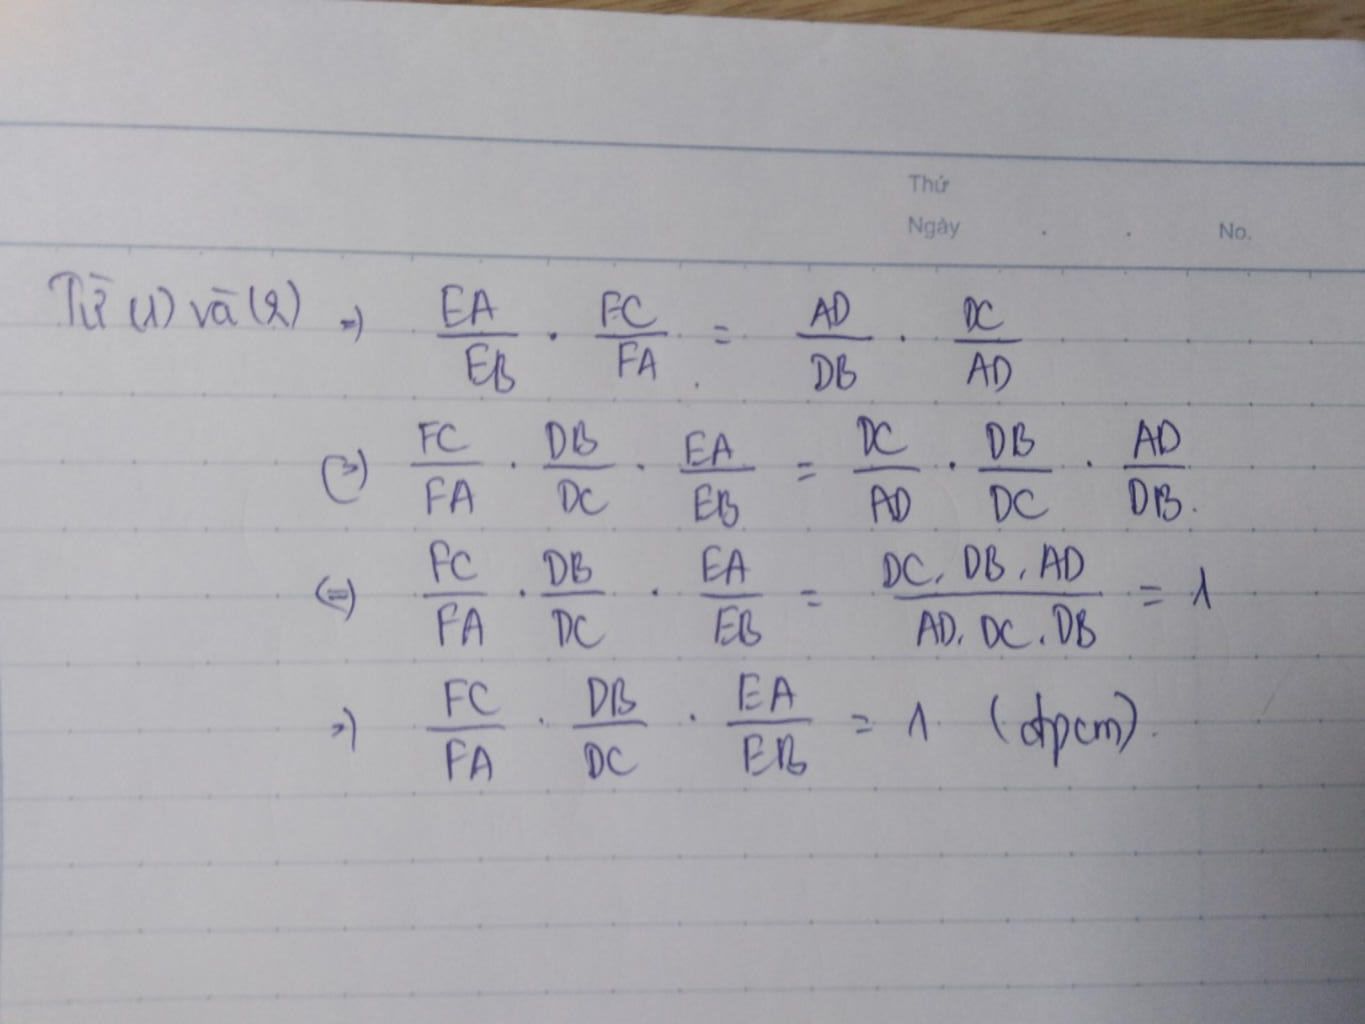 Thứ
Ngày . . No.
Từ (1) và (2) => EA/EB . FC/FA = AD/DB . DC/AD
(=) FC/FA . DB/DC . EA/EB = DC/AD . DB/DC . AD/DB.
(=) FC/FA . DB/DC . EA/EB = DC. DB. AD/AD. DC. DB = 1
=> FC/FA . DB/DC . EA/EB = 1 (đpcm).